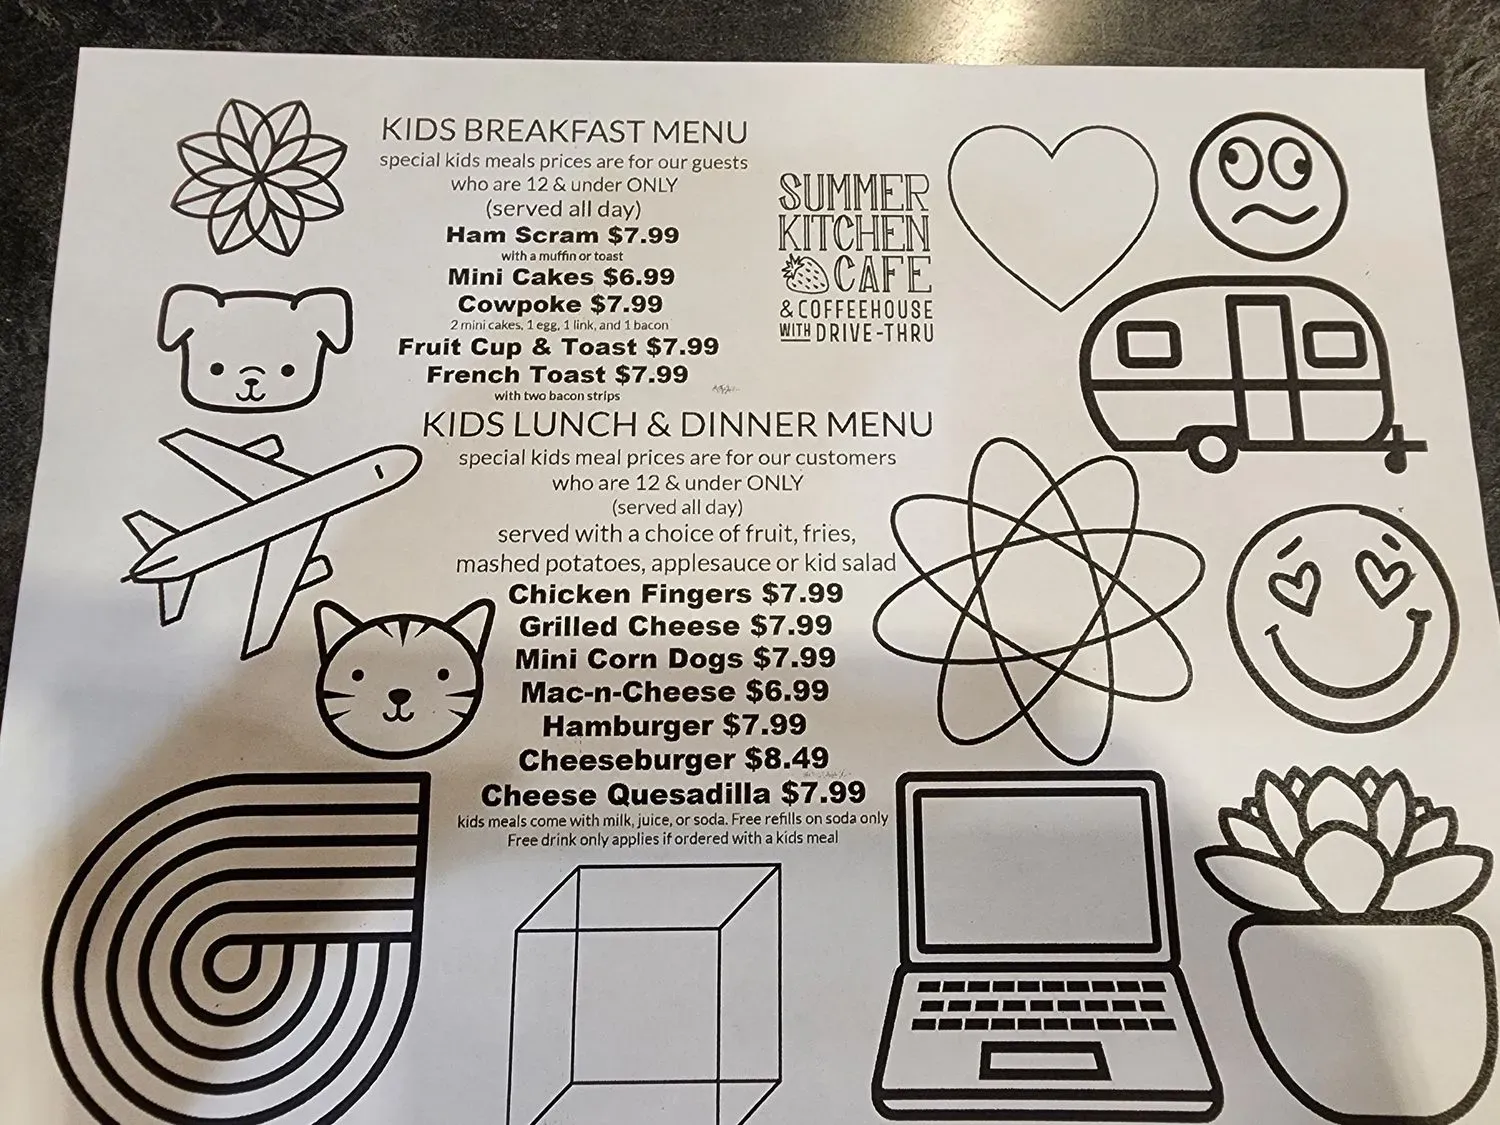 KIDS BREAKFAST MENU
special kids meals prices are for our guests
who are 12 & under ONLY
(served all day)
Ham Scram $7.99
with a muffin or toast
Mini Cakes $6.99
Cowpoke $7.99
2 mini cakes, 1 egg, 1 link, and 1 bacon
Fruit Cup & Toast $7.99
French Toast $7.99
with two bacon strips
SUMMER
KITCHEN
CAFE
& COFFEEHOUSE
WITH DRIVE-THRU
KIDS LUNCH & DINNER MENU
special kids meal prices are for our customers
who are 12 & under ONLY
(served all day)
served with a choice of fruit, fries,
mashed potatoes, applesauce or kid salad
Chicken Fingers $7.99
Grilled Cheese $7.99
Mini Corn Dogs $7.99
Mac-n-Cheese $6.99
Hamburger $7.99
Cheeseburger $8.49
Cheese Quesadilla $7.99
kids meals come with milk, juice, or soda. Free refills on soda only
Free drink only applies if ordered with a kids meal